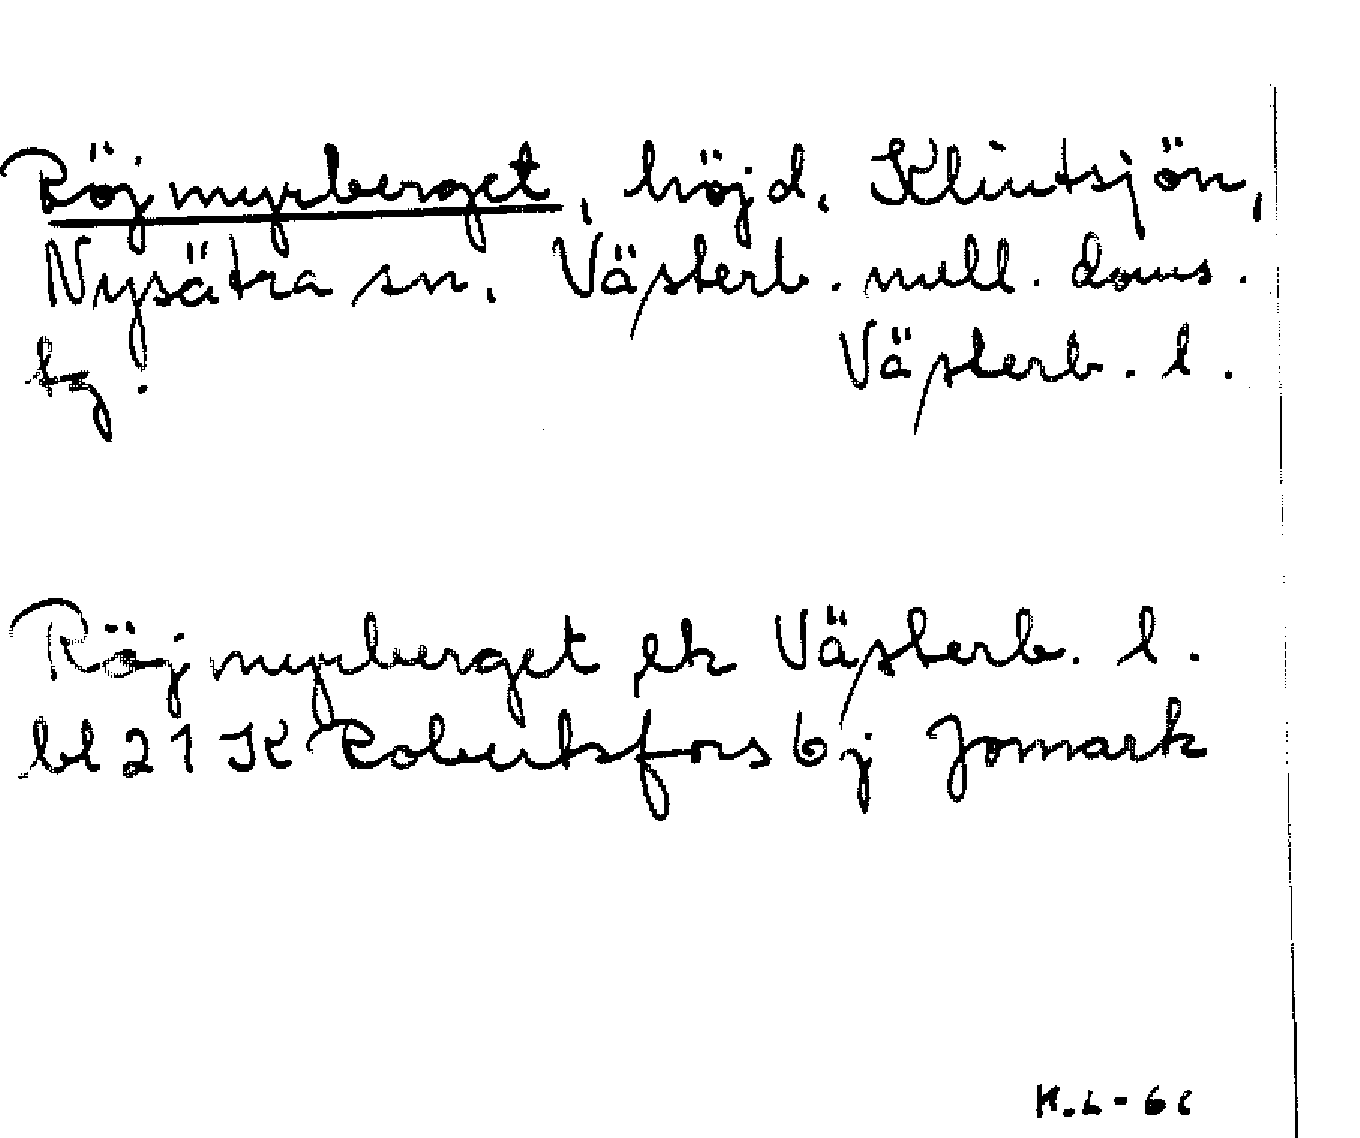 Röjmyrberget, höjd, Klintsjön,
Nysätra sn, Västerb. mell. doms.
tg. Västerb. l.
Röjmyrberget ek Västerb. l.
bl 21 K Robertsfors 6j Jomark